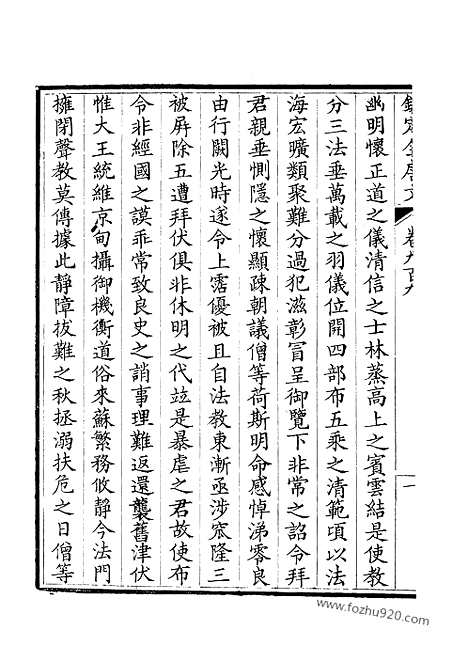 欽定全唐文 卷九百九 一
幽明懷正道之儀清信之士林蒸高上之賓雲結是使教
分三法垂萬載之羽儀位開四部布五乘之清範項以法
海宏曠類聚難分過犯滋彰冒呈御覽下非常之詔令拜
君親垂惻隱之懷顯疎朝議僧等荷斯明命感悼涕零良
由行闕光時遂令上霑優被且自法教東漸亟涉窊隆三
被屏除五遭拜伏俱非休明之代竝是暴虐之君故使布
令非經國之謨乖常致良史之誚事理難返還襲舊津伏
惟大王統維京甸攝御機衡道俗來蘇繁務攸靜今法門
擁閉聲教莫傳據此靜障拔難之秋拯溺扶危之日僧等
www.fozhu920.com